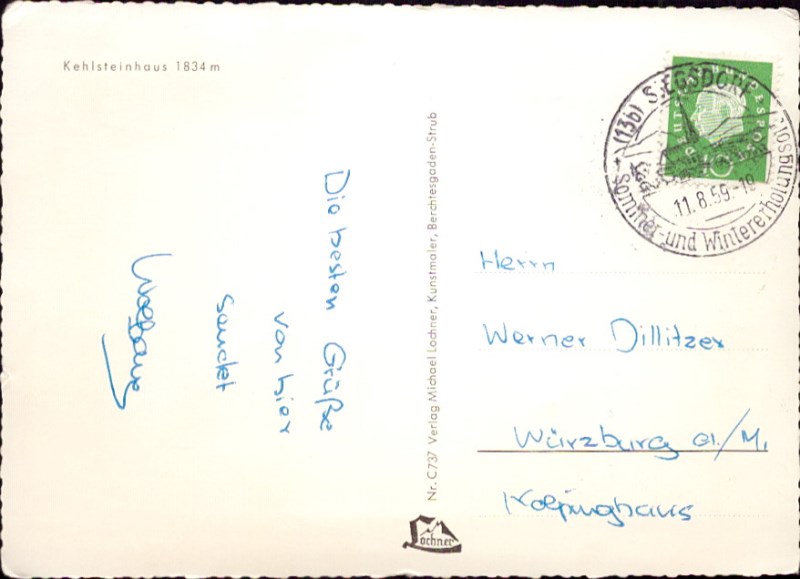 Kehlsteinhaus 1834 m
Die besten Grüße
von hier
sendet
Wolfgang
Nr. C737 Verlag Michael Lochner, Kunstmaler, Berchtesgaden-Strub
Lochner
DEUTSCHE BUNDESPOST
10
(13b) SIEGSDORF
11.8.59.-18
Sommer- und Wintererholungsort
Herrn
Werner Dillitzer
Würzburg a./M.
Kolpinghaus